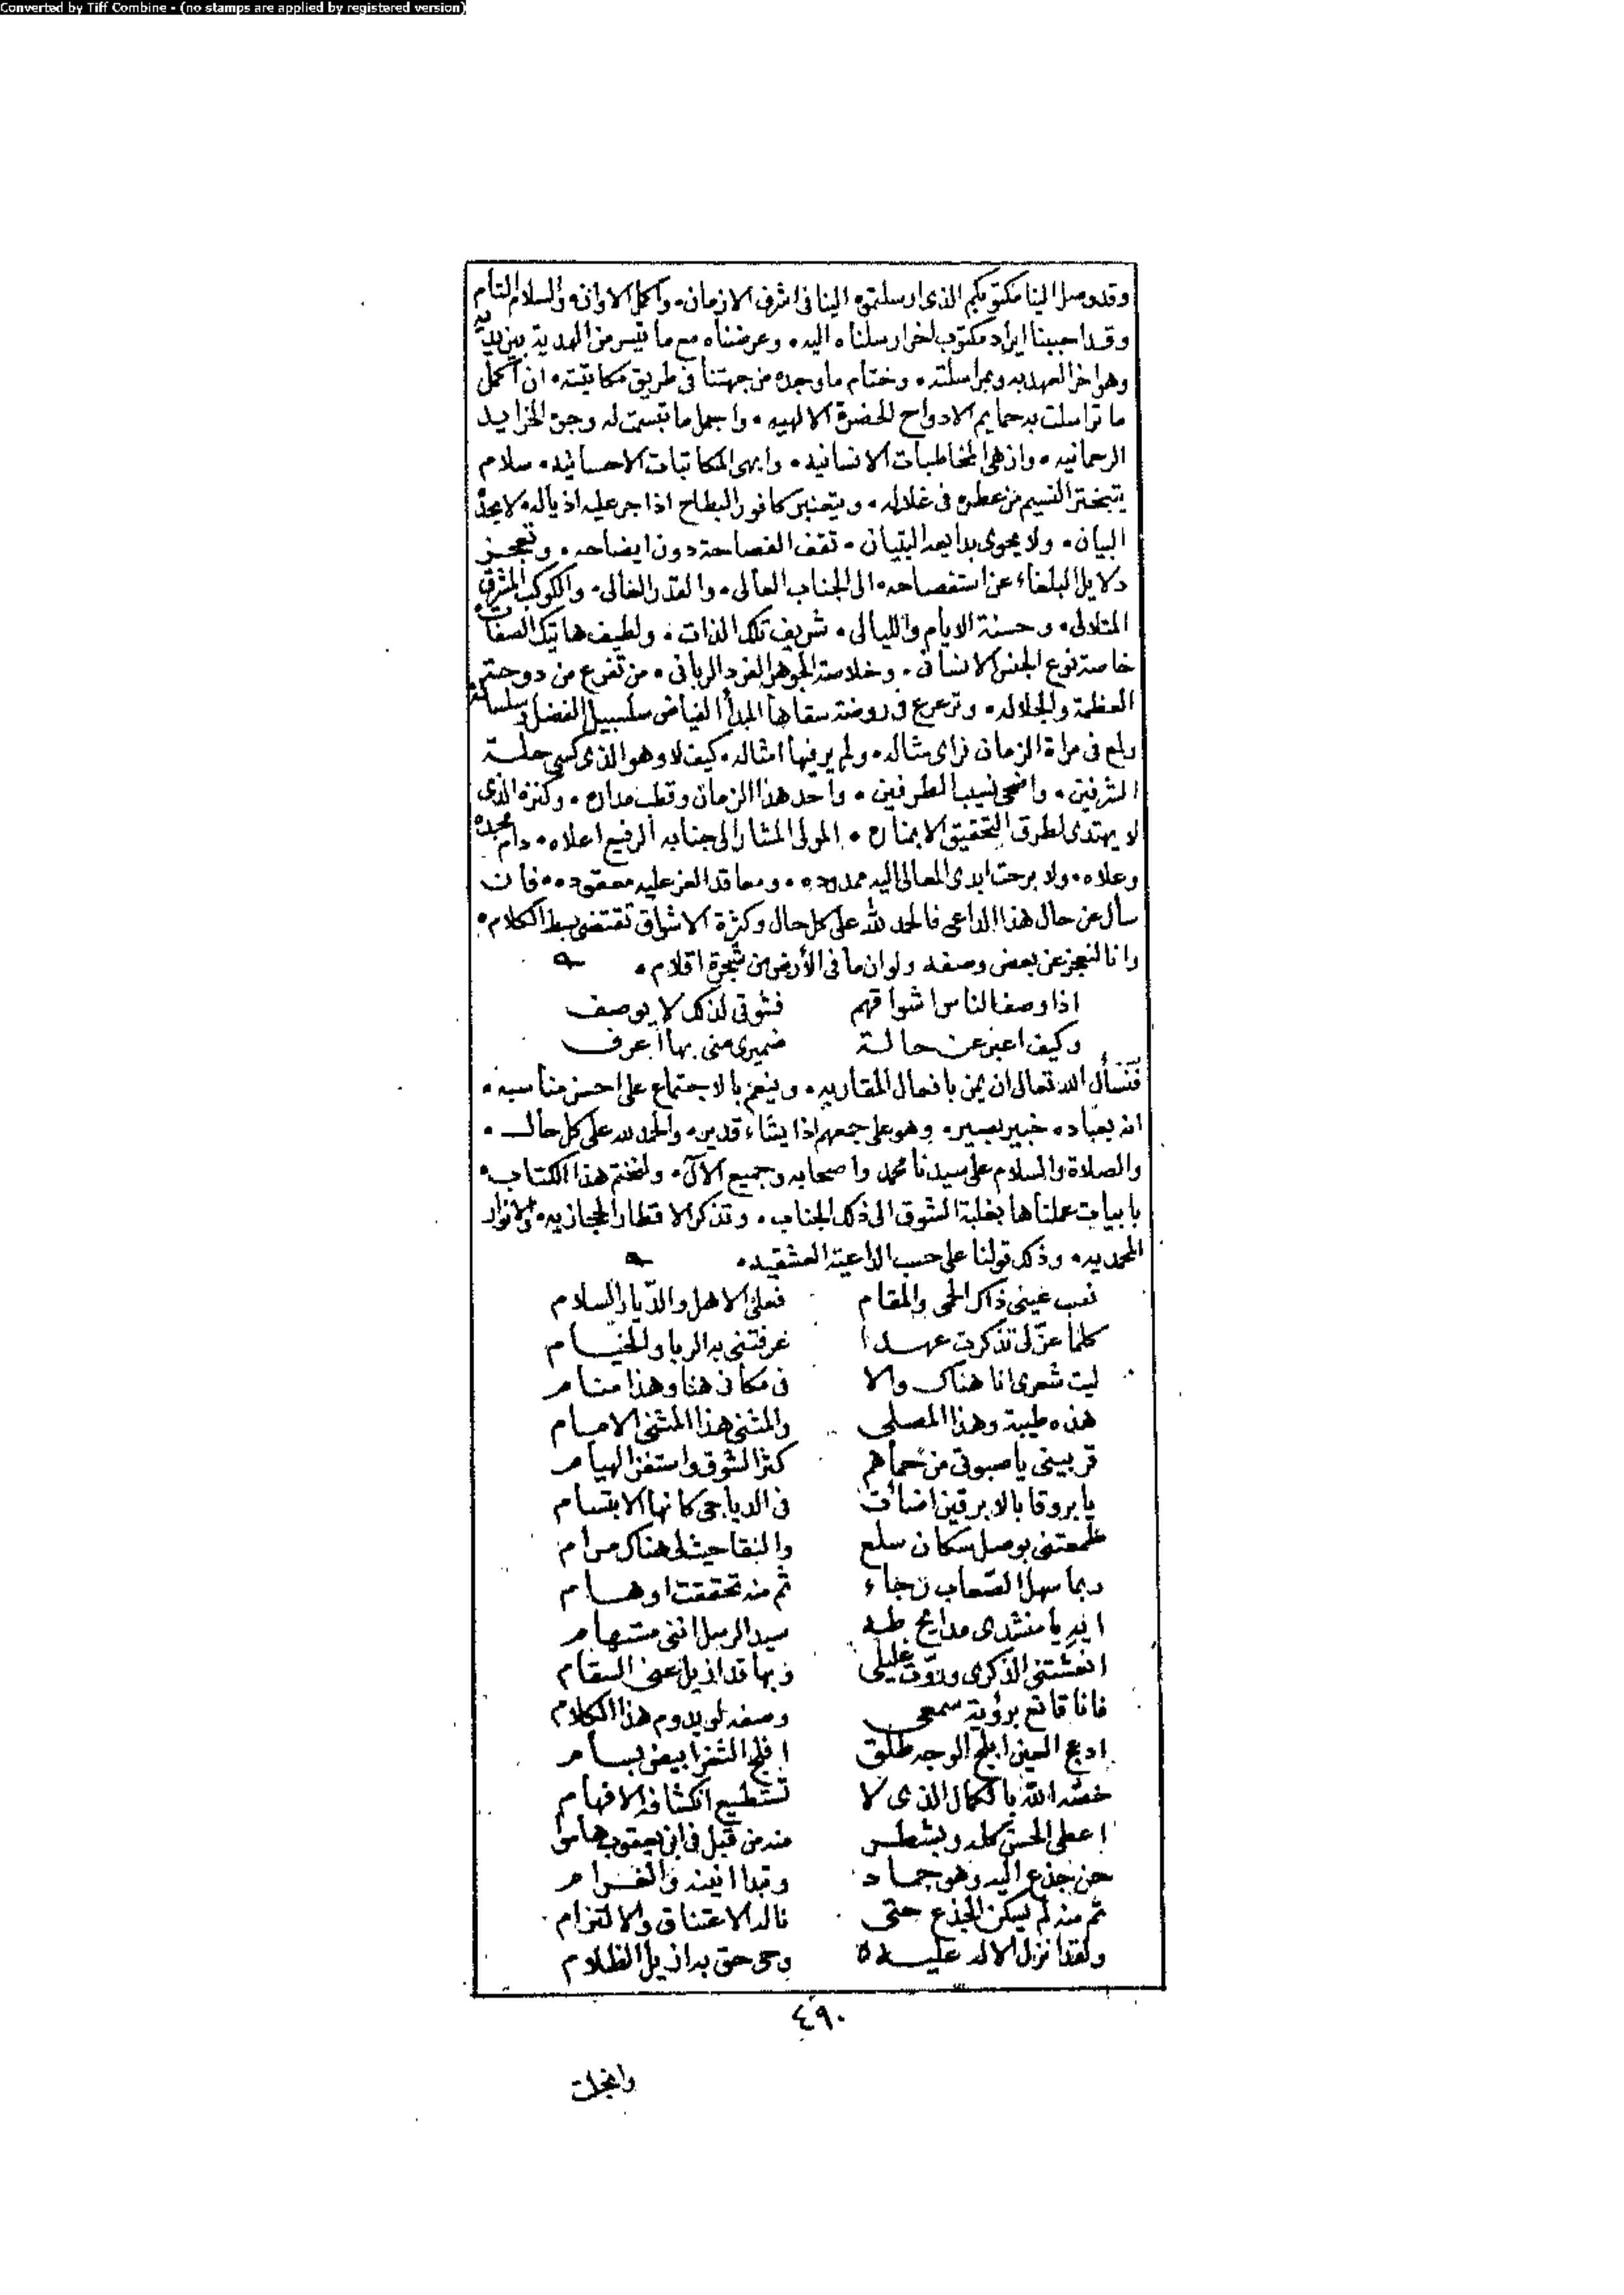 Converted by Tiff Combine - (no stamps are applied by registered version)
وقد وصل الينا مكتوبكم الذى ارسلتموه الينا فى اشرف الازمان. واكمل الاوان. والسلام التام
وقد احببنا ايراد مكتوب اخر ارسلناه اليه. وعرضناه مع ما تيسر من الهدية بين يديه
وهو اخر العهد به وبمراسلته. وختام ما وجد من جهتنا فى طريق مكاتبته. ان اكمل
ما تراسلت به حمايم الارواح للحضرة الالهيه. واجمل ما تبسمت له وجوه الخرايد
الرحمانيه. وازهى المخاطبات الانسانيه. وابهى المكاتبات الاحسانيه. سلام
يتبختر النسيم من عطره فى غلاله. ويتعنبر كافور البطاح اذا جر عليه اذياله. لا يحده
البيان. ولا يحوى بدايعه التبيان. تقف الفصاحة دون ايضاحه. وتعجز
دلايل البلغاء عن استفصاحه. الى الجناب العالى. والقدر الغالى. والكوكب المشرق
المتلالى. وحسنة الايام والليالى. شريف تلك الذات. ولطيف هاتيك الصفات
خاصة نوع الجنس الانسانى. وخلاصة الجوهر الفرد الربانى. من تفرع من دوحة
العظمة والجلاله. وترعرع فى روضة سقاها المبدأ الفياض سلسبيل الفضل وسلساله
ولمع فى مراة الزمان فراى مثاله. ولم ير فيها امثاله. كيف لا وهو الذى كسى حلة
الشرفين. واضحى نسيب الطرفين. واحد هذا الزمان وقطب مداره. وكنزه الذى
لا يهتدى لطرق التحقيق الا بمناره. المولى المشار الى جنابه الرفيع اعلاه. دام مجده
وعلاه. ولا برحت ايدى المعالى اليه ممدوده. ومعاقد العز عليه معقوده. فان
سأل عن حال هذا الداعى فالحمد لله على كل حال وكثرة الاشواق تقتضى بسط الكلام.
وانا لنعجز عن بعض وصفه ولو ان ما فى الأرض من شجرة اقلام.
اذا وصف الناس اشواقهم فشوقى لذلك لا يوصف
وكيف اعبر عن حالة ضميرى منى بها أعرف
فنسأل الله تعالى ان يمن بانفعال المقادير. وينعم بالاجتماع على احسن
انه بعباده خبير بصير. وهو على جمعهم اذا يشاء قدير. والحمد لله على كل حال.
والصلاة والسلام على سيدنا محمد واصحابه وجميع الآل. ولنختم هذا الكتاب.
بابيات عملناها بغلبة الشوق الى ذلك الجناب. وتذكر الاقطار الحجازيه. والانوار
المحمديه. وذلك قولنا على حسب الداعية العشقيه.
نصب عينى ذاك الحمى والمقام فعلى الاهل والديار السلام
كلما عزلى تذكرت عهدا عرفتنى به الربا والخيام
ليت شعرى انا هناك والا فى مكانى هنا وهذا منام
هذه طيبة وهذا المصلى والمثنى هذا المثنى الامام
قربينى يا صبوتى من حماهم كثر الشوق واستفز الهيام
يا بروقا بالابرقين اضاءت فى الدياجى كانها الابتسام
طمعتنى بوصل سكان سلع والنقا حيث لى هناك مرام
ربما سهل الصعاب رجاء ثم منه تحققت اوهام
ايه يا منشدى مدايح طه سيد الرسل اننى مستهام
انعشتنى الذكرى وروت غليلى وبها قد ازيل عنى السقام
فانا قانع برؤية سمعى وصفه لو يدوم هذا الكلام
ادعج العين ابلج الوجه طلق افلج الثغر ابيض بسام
خصه الله بالكمال الذى لا تستطيع انكشافه الافهام
اعطى الحسن كله وبشطر منه من قبل فى ابن يعقوب هاموا
حن جذع اليه وهو جماد وبدا انينه والغرام
ثم منه لم يسكن الجذع حتى ناله الاعتناق والالتزام
ولقد انزل الاله عليه وحى حق به ازيل الظلام
٤٩٠
وانجلت